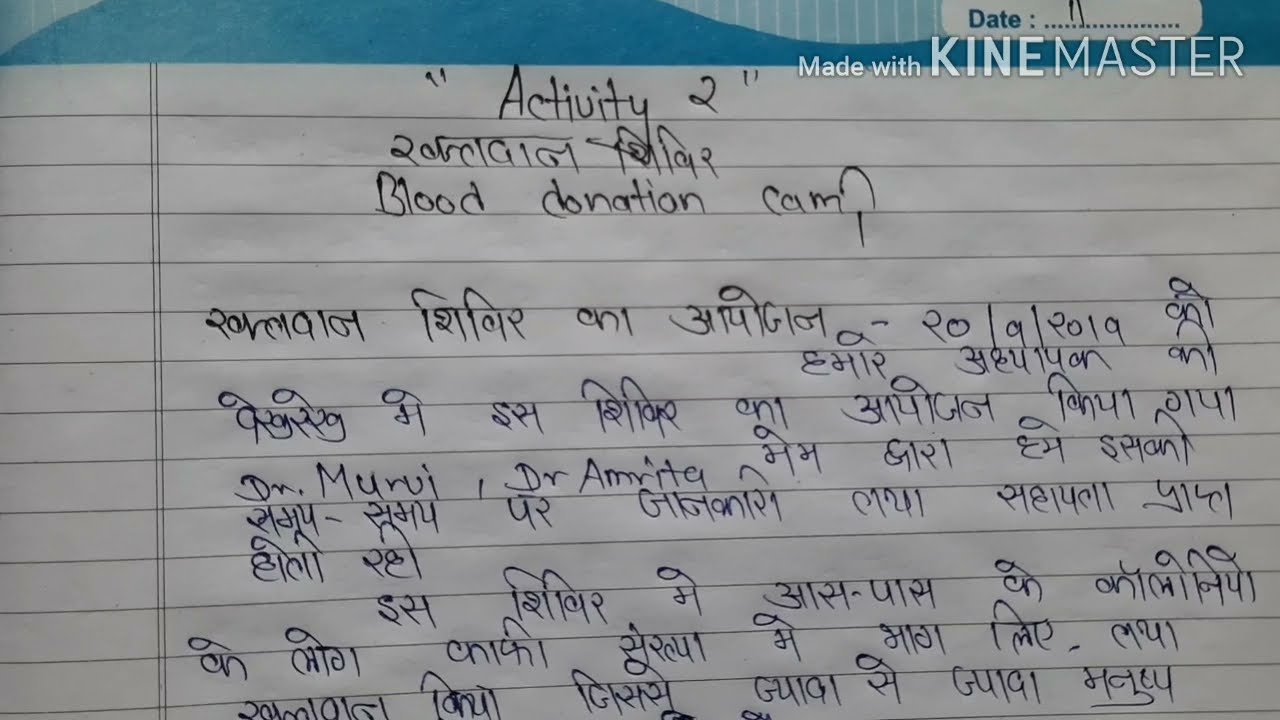 Date : ...........
Made with KINEMASTER
" Activity २ "
रक्तदान शिविर
Blood donation camp
रक्तदान शिविर का आयोजन - २०/१/२०१९ को
हमारे अध्यापक की
देखरेख मे इस शिविर का आयोजन किया गया
मेम द्वारा हमे इसकी
Dr. , Dr Amrita
समय - समय पर जानकारी तथा सहायता प्राप्त
होती रही
इस शिविर मे आस-पास के कॉलोनियो
के लोग काफी संख्या मे भाग लिए - तथा
रक्तदान किया जिससे ज्यादा से ज्यादा मनुष्य